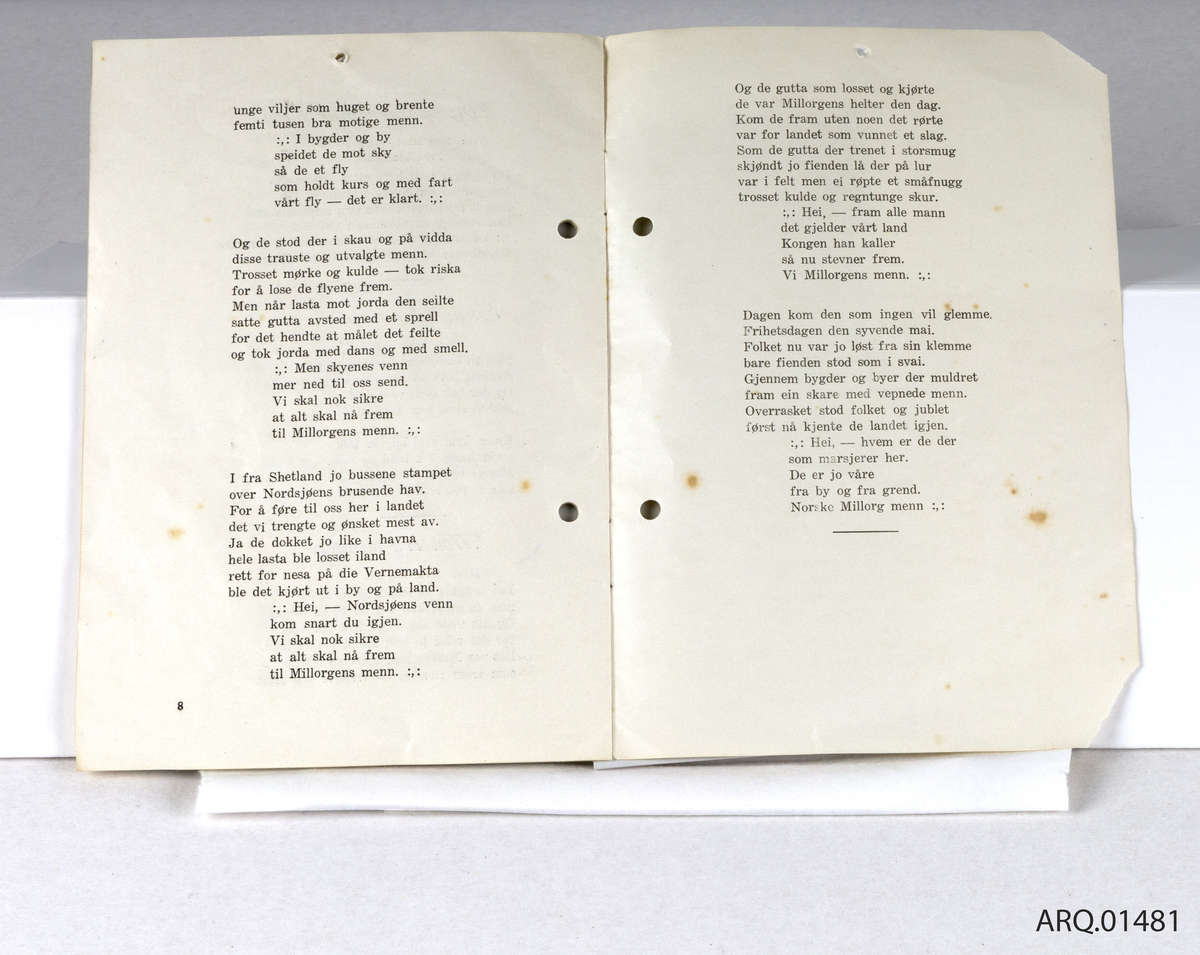 unge viljer som huget og brente
femti tusen bra motige menn.
:,: I bygder og by
speidet de mot sky
så de et fly
som holdt kurs og med fart
vårt fly — det er klart. :,:
Og de stod der i skau og på vidda
disse trauste og utvalgte menn.
Trosset mørke og kulde — tok riska
for å lose de flyene frem.
Men når lasta mot jorda den seilte
satte gutta avsted med et sprell
for det hendte at målet det feilte
og tok jorda med dans og med smell.
:,: Men skyenes venn
mer ned til oss send.
Vi skal nok sikre
at alt skal nå frem
til Millorgens menn. :,:
I fra Shetland jo bussene stampet
over Nordsjøens brusende hav.
For å føre til oss her i landet
det vi trengte og ønsket mest av.
Ja de dokket jo like i havna
hele lasta ble losset iland
rett for nesa på die Vernemakta
ble det kjørt ut i by og på land.
:,: Hei, — Nordsjøens venn
kom snart du igjen.
Vi skal nok sikre
at alt skal nå frem
til Millorgens menn. :,:
8
Og de gutta som losset og kjørte
de var Millorgens helter den dag.
Kom de fram uten noen det rørte
var for landet som vunnet et slag.
Som de gutta der trenet i storsmug
skjøndt jo fienden lå der på lur
var i felt men ei røpte et småfnugg
trosset kulde og regntunge skur.
:,: Hei, — fram alle mann
det gjelder vårt land
Kongen han kaller
så nu stevner frem.
Vi Millorgens menn. :,:
Dagen kom den som ingen vil glemme.
Frihetsdagen den syvende mai.
Folket nu var jo løst fra sin klemme
bare fienden stod som i svai.
Gjennem bygder og byer der muldret
fram ein skare med vepnede menn.
Overrasket stod folket og jublet
først nå kjente de landet igjen.
:,: Hei, — hvem er de der
som marsjerer her.
De er jo våre
fra by og fra grend.
Norske Millorg menn :,:
ARQ.01481